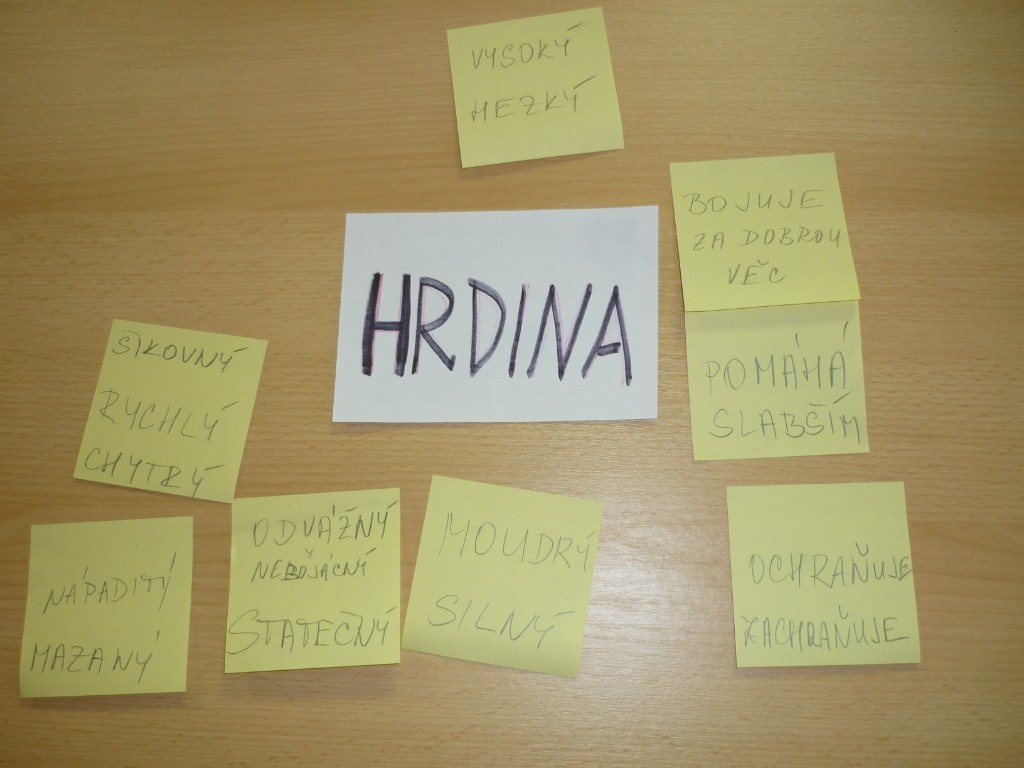 VYSOKÝ
HEZKÝ
BOJUJE
ZA DOBROU
VĚC
HRDINA
POMÁHÁ
SLABŠÍM
ŠIKOVNÝ
RYCHLÝ
CHYTRÝ
ODVÁŽNÝ
NEBOJÁCNÝ
STATEČNÝ
MOUDRÝ
SILNÝ
OCHRAŇUJE
ZACHRAŇUJE
NÁPADITÝ
MAZANÝ